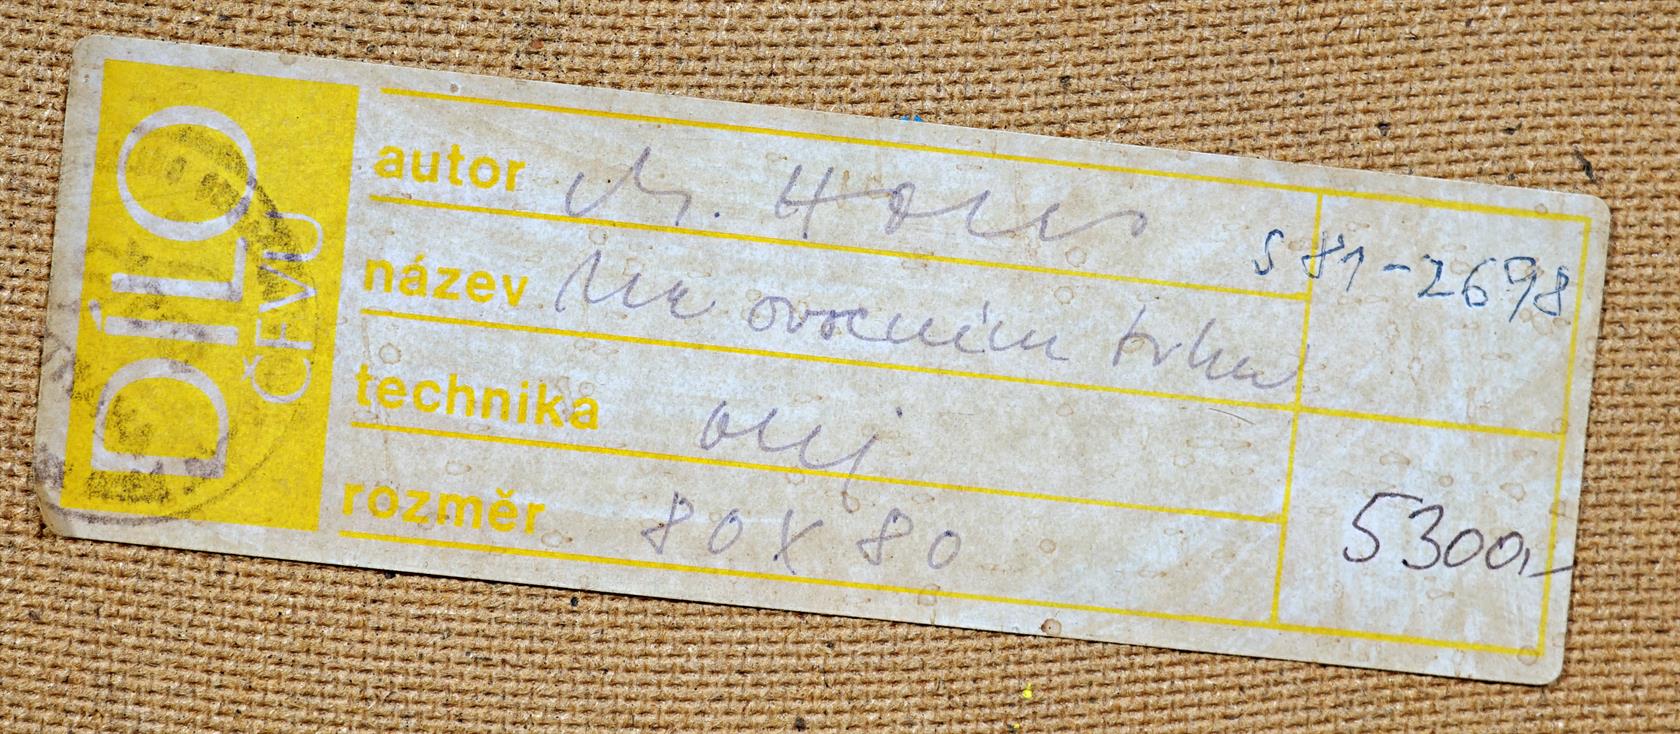 DÍLO
ČFVU
autor M. Holes
S 81-2698
název Na ovocném trhu
technika olej
rozměr 80X80
5300,-